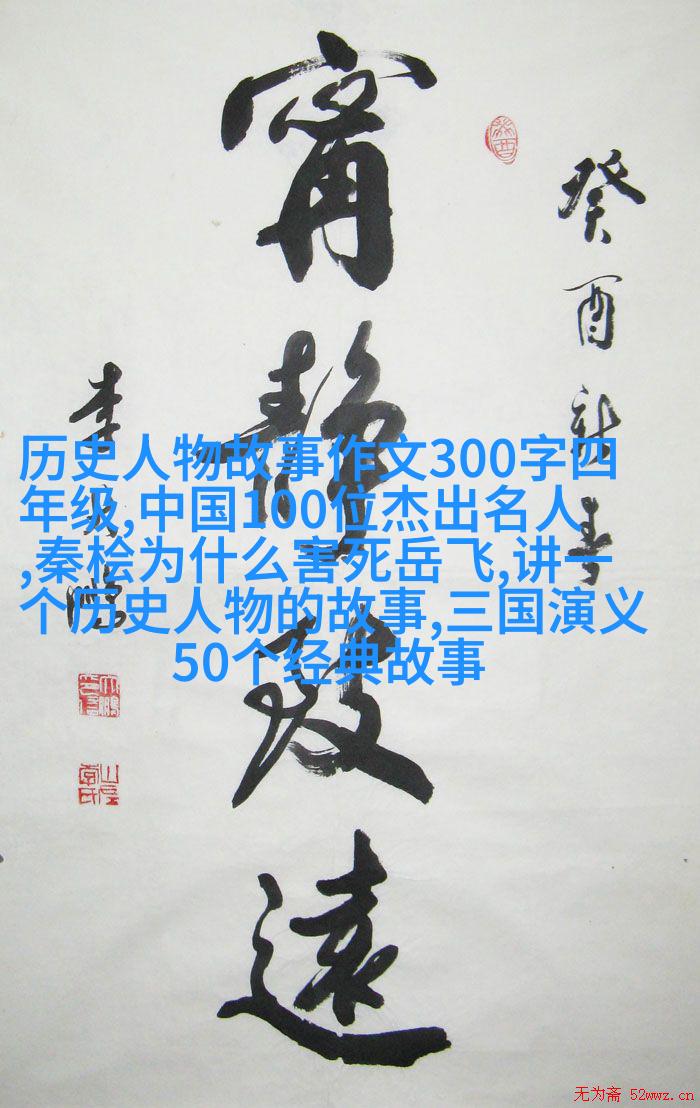 癸酉新春
甯静致遠
李大鹏
历史人物故事作文300字四
年级,中国100位杰出名人
,秦桧为什么害死岳飞,讲一
个历史人物的故事,三国演义
50个经典故事
无为斋 52wwz.cn